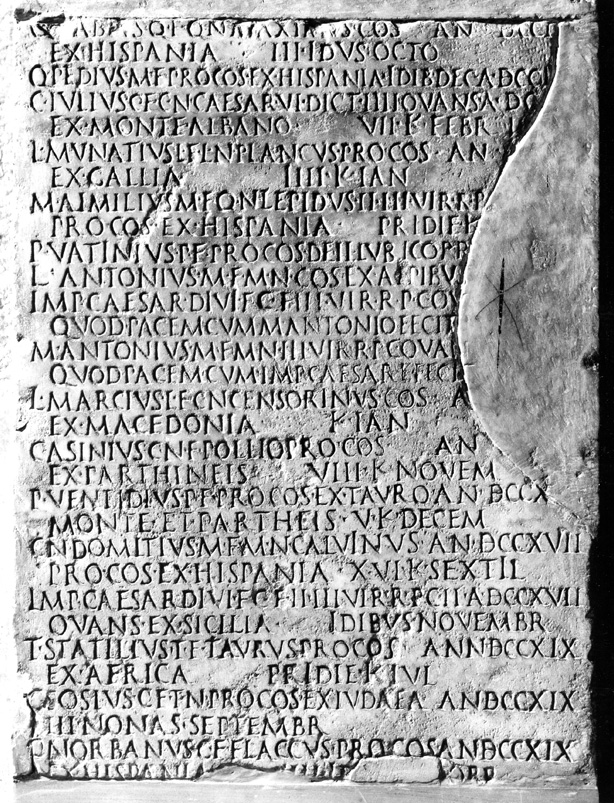 FABIVS·Q·F·Q·N·MAXIMVS·COS AN DCCI
EX·HISPANIA III·IDVS·OCTO
Q·PEDIVS·M·F·PROCOS·EX·HISPANIA·IDIB·DEC·A·DCCI
C·IVLIVS·C·F·C·N·CAESAR·VI·DICT·IIII·OVANS·A·DC
EX·MONTE·ALBANO VII·K·FEBR
L·MVNATIVS·L·F·L·N·PLANCVS·PROCOS·AN
EX·GALLIA IIII·K·IAN
M·AIMILIVS·M·F·Q·N·LEPIDVS·II·III·VIR·R·P
PROCOS·EX·HISPANIA PRIDIE·K
P·VATINIVS·P·F·PROCOS·DE·ILLVRICO·PR
L·ANTONIVS·M·F·M·N·COS·EX·ALPIBV
IMP·CAESAR·DIVI·F·C·F·III·VIR·R·P·C·OV
QVOD·PACEM·CVM·M·ANTONIO·FECIT
M·ANTONIVS·M·F·M·N·III·VIR·R·P·C·OVA
QVOD·PACEM·CVM·IMP·CAESARE·FECI
L·MARCIVS·L·F·C·N·CENSORINVS·COS A
EX·MACEDONIA K·IAN
C·ASINIVS·CN·F·POLLIO·PROCOS AN
EX·PARTHINEIS VIII·K·NOVEM
P·VENTIDIVS·P·F·PROCOS·EX·TAVRO·AN·DCCX
MONTE·ET·PARTHEIS·V·K·DECEM
CN·DOMITIVS·M·F·M·N·CALVINVS·AN·DCCXVII
PROCOS·EX·HISPANIA XVI·K·SEXTIL
IMP·CAESAR·DIVI·F·C·F·II·III·VIR·R·P·C·II·A·DCCXVII
OVANS·EX·SICILIA IDIBVS·NOVEMBR
T·STATILIVS·T·F·TAVRVS·PROCOS ANN·DCCXIX
EX·AFRICA PRIDIE·K·IVL
C·SOSIVS·C·F·T·N·PROCOS·EX·IVDAEA AN·DCCXIX
III·NONAS·SEPTEMBR
C·NORBANVS·C·F·FLACCVS·PROCOS·AN·DCCXIX
EX·HISPANIA